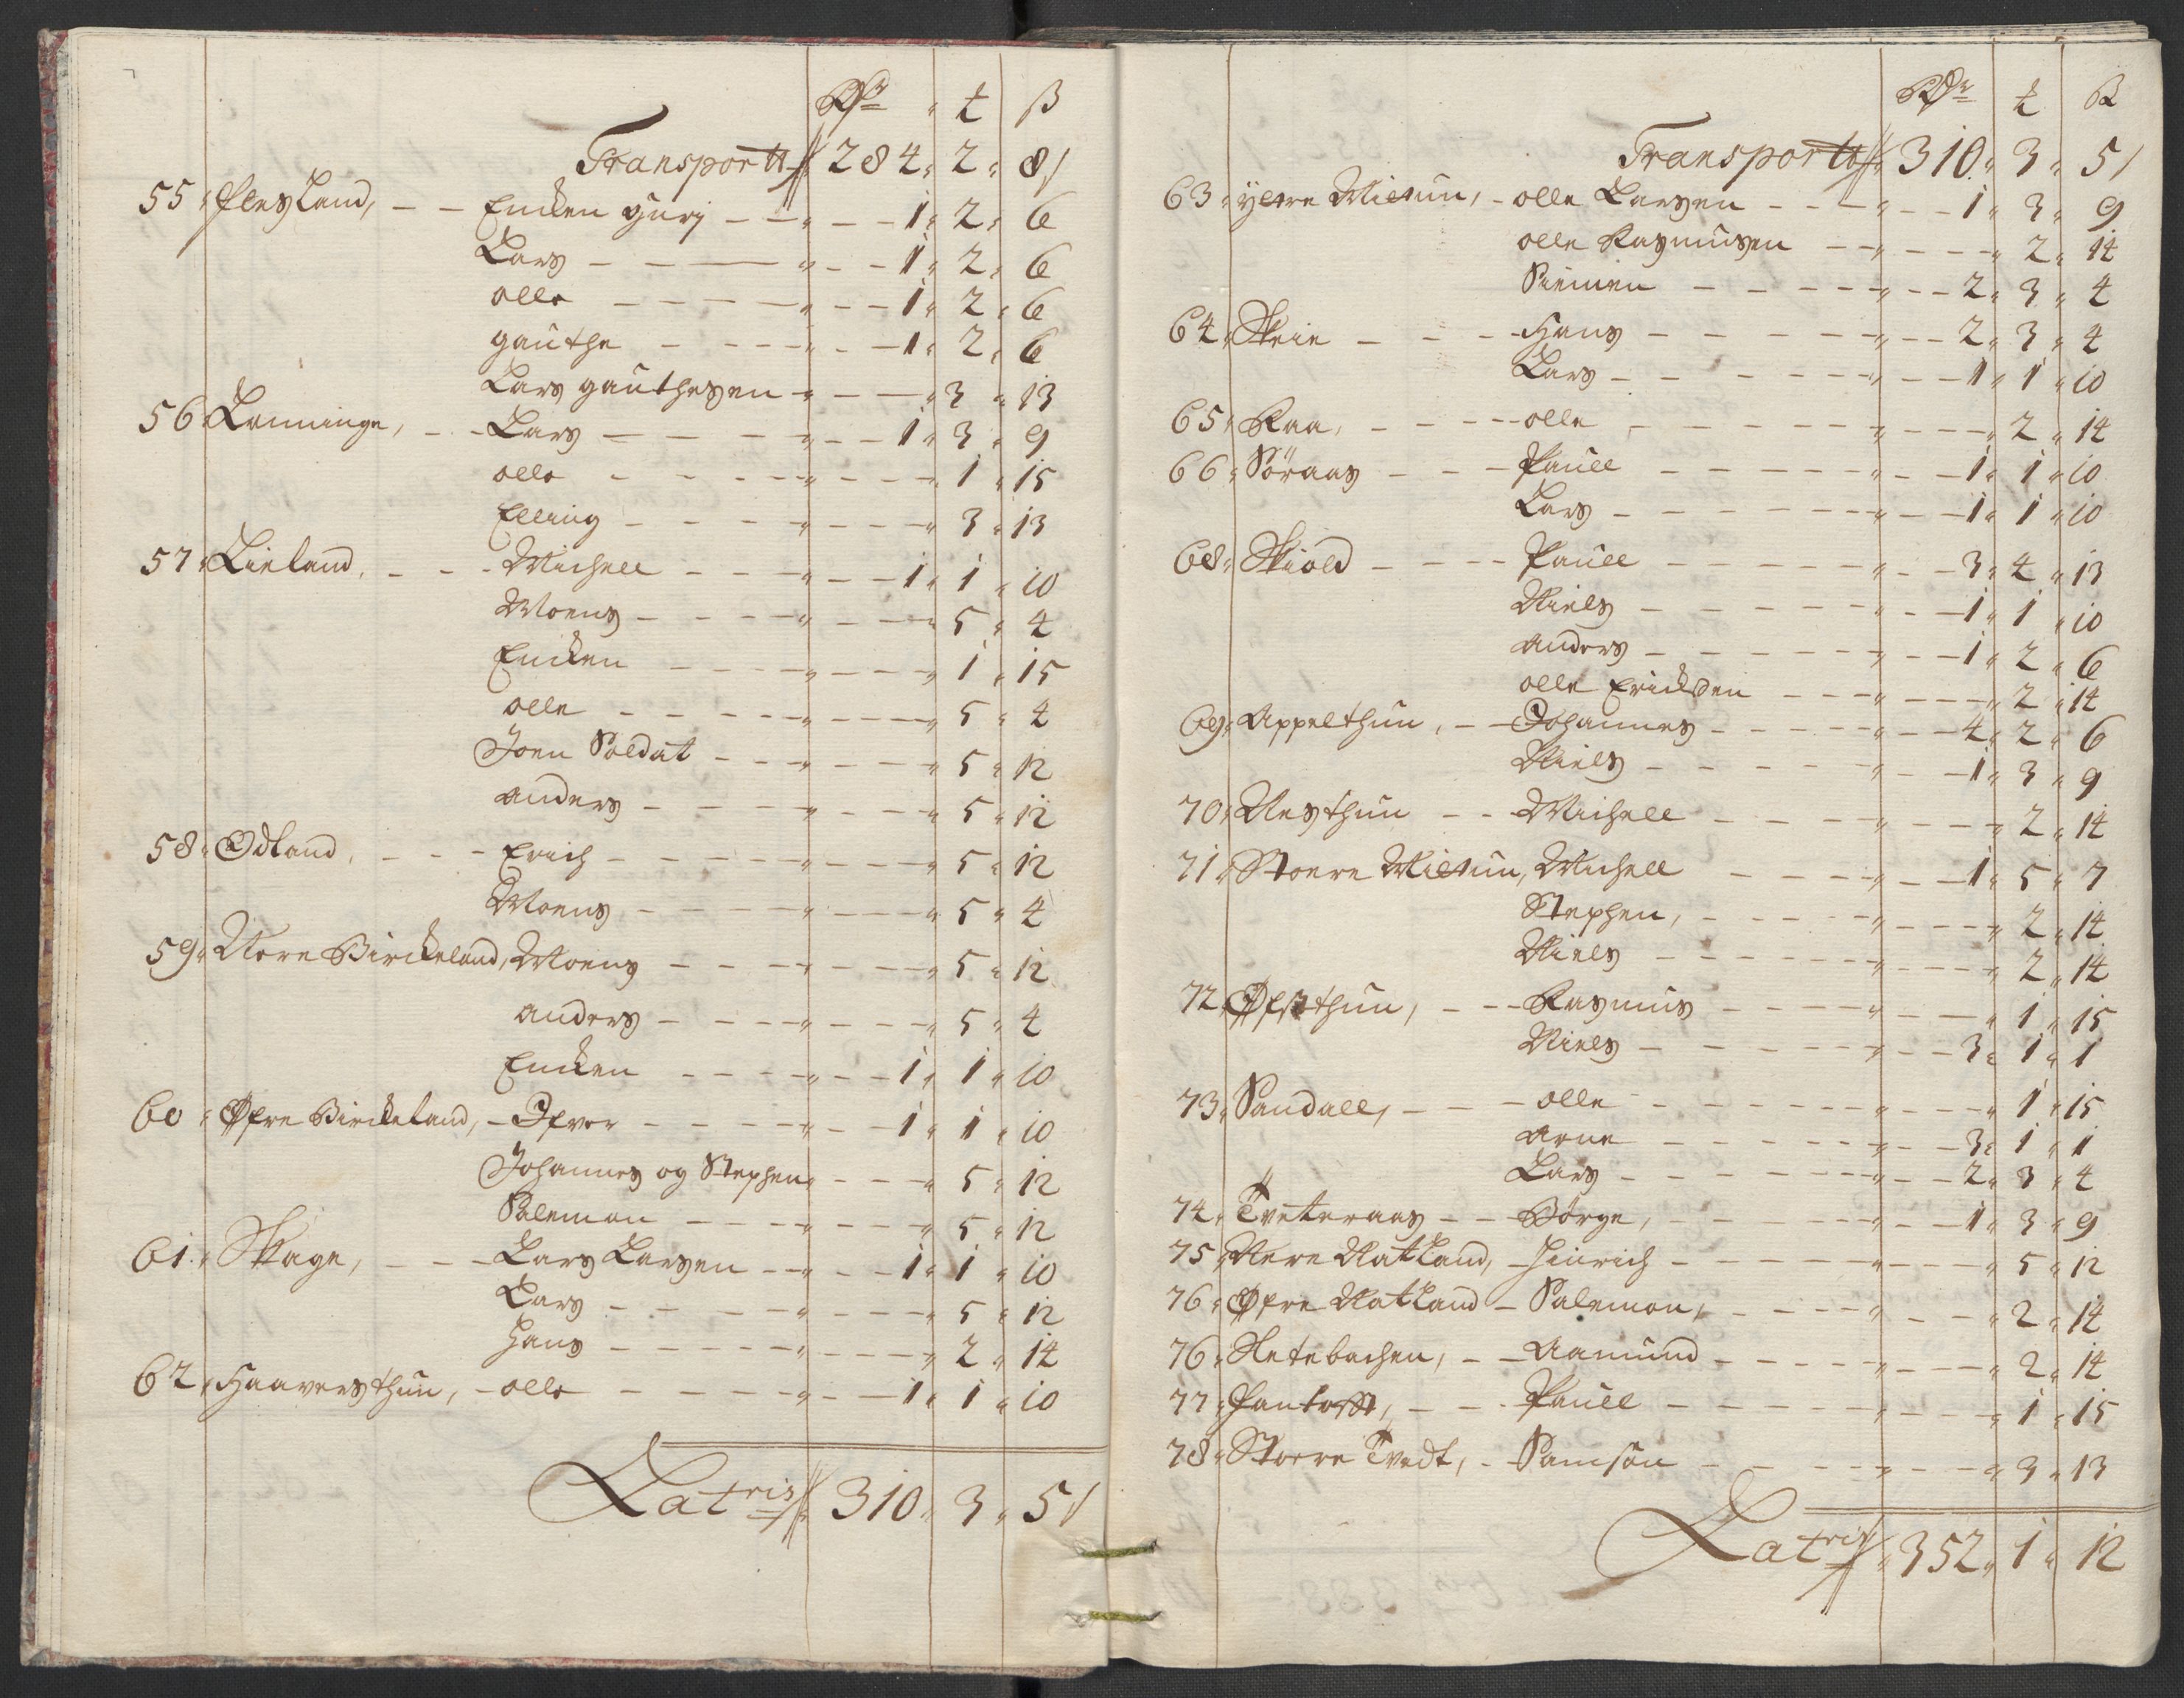 Rdr " t ß
Transportt 284 " 2 " 8
55 " Flesland, - - Encken gurj - - " - - 1 " 2 " 6
Lars - - - " - - 1 " 2 " 6
olle - - - - " - - 1 " 2 " 6
gauthe - - - - " - - 1 " 2 " 6
Lars gauthesen - " - - - " 3 " 13
56 Lønninge, - - Lars - - - - " - - 1 " 3 " 9
olle - - - - " - - - " 1 " 15
Elling - - - - " - - - " 3 " 13
57 " Lieland, - - - Michell - - - " - - 1 " 1 " 10
Moens - - - - " - - - " 5 " 4
Encken - - - - " - - - " 1 " 15
olle - - - - " - - - " 5 " 4
Joen Soldat - - - " - - - " 5 " 12
anders - - - - " - - - " 5 " 12
58 " Ødland, - - - Erich - - - - " - - - " 5 " 12
Moens - - - - " - - - " 5 " 4
59 " Nere Birckeland, Moens - - - " - - - " 5 " 12
anders - - - - " - - - " 5 " 4
Encken - - - - " - - 1 " 1 " 10
60 " Øfre Birckeland, - Ifver - - - - " - - 1 " 1 " 10
Johannes og Stephen " - - - " 5 " 12
Salemon - - - - " - - - " 5 " 12
61 " Skage, - - - Lars Larsen - - " - - 1 " 1 " 10
Lars - - - - " - - - " 5 " 12
Hans - - - - " - - - " 2 " 14
62 " Haaversthun, - olle - - - - " - - 1 " 1 " 10
Latris 310 " 3 " 5
Rdr t ß
Transportt 310 " 3 " 5
63 " ytre Mietun, - olle Larsen - - - " - - 1 " 3 " 9
olle Rasmusen - - " - - - " 2 " 14
Siemen - - - - " - - 2 " 3 " 4
64 " Skeie - - - Hans - - - - " - - 2 " 3 " 4
Lars - - - - " - - 1 " 1 " 10
65 " Raa, - - - - olle - - - - " - - - " 2 " 14
66 " Söraas - - - Pauel - - - - " - - 1 " 1 " 10
Lars - - - - " - - 1 " 1 " 10
68 " Skiold - - - - Pauel - - - - " - - 3 " 4 " 13
Niels - - - - " - - 1 " 1 " 10
anders - - - - " - - 1 " 2 " 6
olle Ericksen - - - " - - - " 2 " 14
69 " Appelthun, - - Johannes - - - - " - - 4 " 2 " 6
Niels - - - - " - - 1 " 3 " 9
70 " Nesthun - - Michell - - - - " - - - " 2 " 14
71 " Stoere Mietun, Michell - - - " - - 1 " 5 " 7
Stephen, - - - - " - - - " 2 " 14
Niels - - - - " - - - " 2 " 14
72 " Øfsthun, - - Rasmus - - - - " - - - " 1 " 15
Niels - - - - " - - 3 " 1 " 1
73 " Sandall, - - - olle - - - - " - - - " 1 " 15
arne - - - - " - - 3 " 1 " 1
Lars - - - - " - - 2 " 3 " 4
74 " Tveteraas - - Börge, - - - - " - - 1 " 3 " 9
75 " Nere Natland, - Hinrich - - - - " - - - " 5 " 12
76 " Øfre Natland - Salemon, - - - " - - - " 2 " 14
76 " Sletebachen, - - Aamund - - - - " - - - " 2 " 14
77 " Fantofft, - - - Pauel - - - - " - - - " 1 " 15
78 " Stoere Tvedt, - Samson - - - - " - - - " 3 " 13
Latris " 352 " 1 " 12